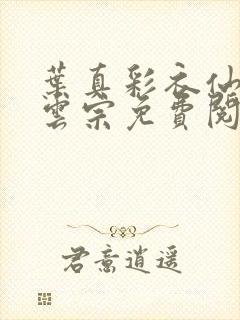 葉真彩衣仙
雲宗免費閱
君意逍遥